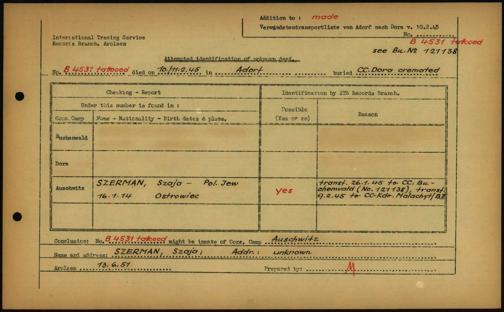 Addition to : made
Vermgdstentransportliste von Adorf nach Dora v. 10.2.45
International Tracing Service
Records Branch, Arolsen
No.
B 4531 tattooed
see Bu. Nº 121138
Attempted identification of unknown dead.
No. B 4531 tattooed died on 10/11.2.45 in Adorf buried CC. Dora cremated
Checking - Report
Identification by ITS Records Branch.
Under this number is found in :
Possible
(Yes or no)
Reason
Conc. Camp
Name - Nationality - Birth dates & place.
Buchenwald
Dora
Auschwitz
SZERMAN, Szaja - Pol. Jew
16.1.14 Ostrowiec
yes
transf. 26.1.45 to CC. Bu-
chenwald (No. 121138), transf.
9.2.45 to CC-Kdr. Malachyt/BII
Conclusion: No. B 4531 tattooed might be inmate of Conc. Camp Auschwitz
Name and address: SZERMAN, Szaja; Addr.: unknown
Arolsen 13.6.51 Prepared by: